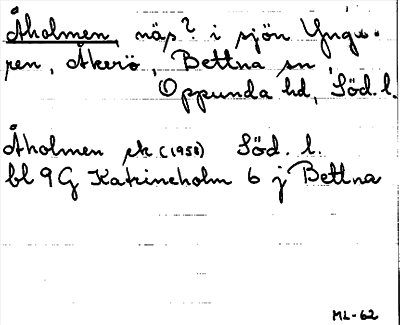 Åholmen, näs? i sjön Ynga-
ren, Åkerö, Bettna sn
Oppunda hd, Söd. l.
Åholmen ek (1958) Söd. l.
bl 9G Katrineholm 6 j Bettna
ML-62